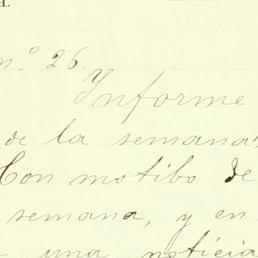 n.º 26.
Informe
de la semana
Con motibo de
semana, y en
una noticia